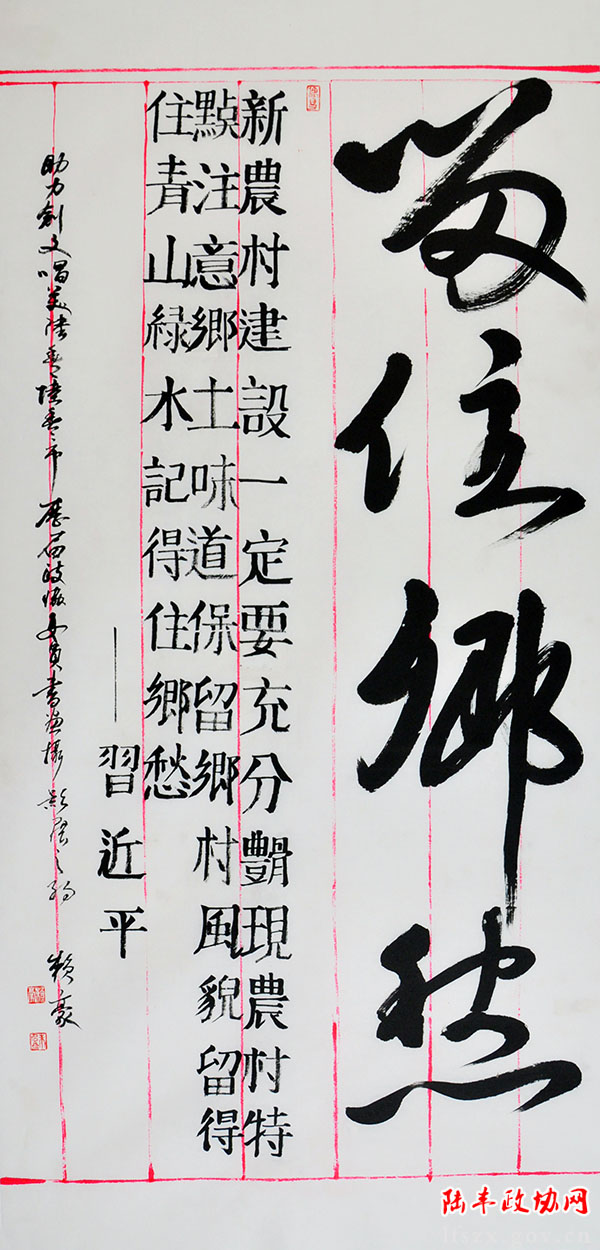 留住鄉愁
新農村建設一定要充分體現農村特
點注意鄉土味道保留鄉村風貌留得
住青山緑水記得住鄉愁
——習近平
助力創文唱美陸豐陸豐市歷屆政協委員書畫攝影展之約 賴豪
陆丰政协网
lfszx.gov.cn